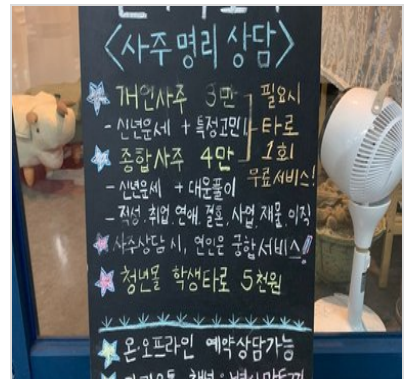 <사주명리상담>
개인사주 3만
- 신년운세 + 특정고민
종합사주 4만
- 신년운세 + 대운풀이
- 적성, 취업, 연애, 결혼, 사업, 재물, 이직
필요시
타로
1회
무료서비스!
사주상담시, 연인은 궁합서비스!
청년몰 학생타로 5천원
온·오프라인 예약상담가능